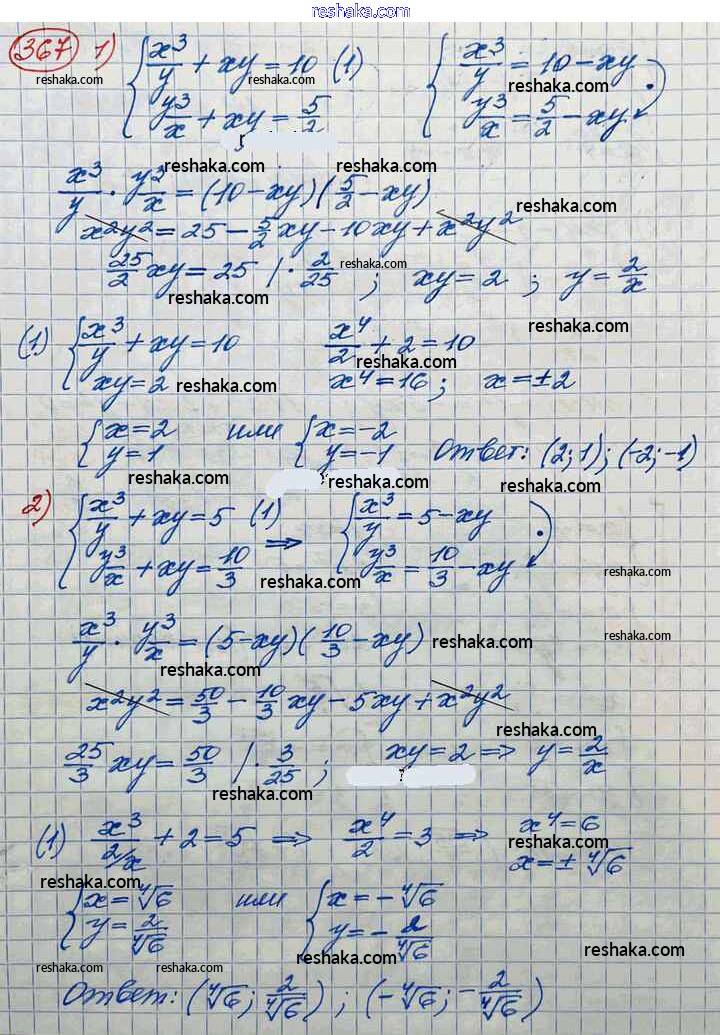 reshaka.com
367 1) { x³/y + xy = 10 (1) { x³/y = 10 - xy
{ y³/x + xy = 5/2 { y³/x = 5/2 - xy
reshaka.com reshaka.com reshaka.com reshaka.com
x³/y · y³/x = (10 - xy)(5/2 - xy)
reshaka.com reshaka.com reshaka.com
x²y² = 25 - 5/2 xy - 10xy + x²y²
25/2 xy = 25 | · 2/25 ; xy = 2 ; y = 2/x
reshaka.com reshaka.com reshaka.com
(1) { x³/y + xy = 10 x⁴/2 + 2 = 10
{ xy = 2 x⁴ = 16; x = ±2
reshaka.com reshaka.com
{ x = 2 или { x = -2
{ y = 1 { y = -1 Ответ: (2; 1); (-2; -1)
reshaka.com reshaka.com reshaka.com
2) { x³/y + xy = 5 (1) ⇒ { x³/y = 5 - xy
{ y³/x + xy = 10/3 { y³/x = 10/3 - xy
reshaka.com reshaka.com
x³/y · y³/x = (5 - xy)(10/3 - xy)
reshaka.com reshaka.com reshaka.com
x²y² = 50/3 - 10/3 xy - 5xy + x²y²
reshaka.com
25/3 xy = 50/3 | · 3/25 ; xy = 2 ⇒ y = 2/x
reshaka.com
(1) x³/(2/x) + 2 = 5 ⇒ x⁴/2 = 3 ⇒ x⁴ = 6
x = ± ⁴√6
reshaka.com reshaka.com reshaka.com
{ x = ⁴√6 или { x = -⁴√6
{ y = 2/⁴√6 { y = -2/⁴√6
reshaka.com reshaka.com reshaka.com reshaka.com
Ответ: (⁴√6; 2/⁴√6); (-⁴√6; -2/⁴√6)
reshaka.com reshaka.com